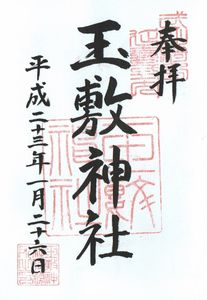 奉拝
玉敷神社
平成二十三年一月二十六日